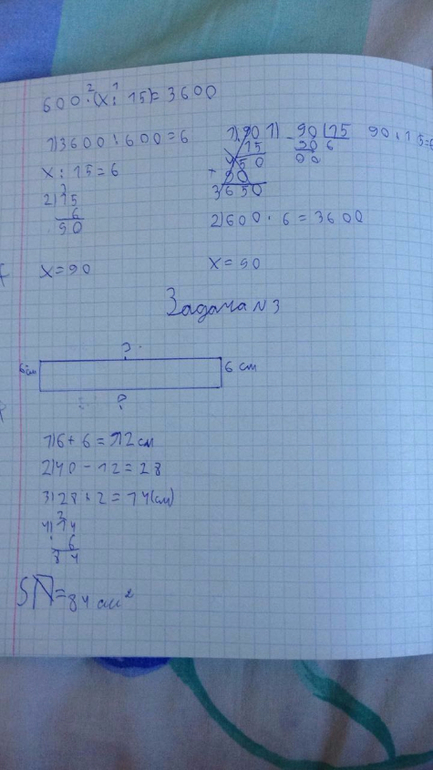 600·(x:15)=3600
1)3600:600=6
x:15=6
2)15
6
90
x=90
1) 90 15
90 6
00
90:15=6
2)600·6=3600
x=90
Задача N3
?
6см
6 см
?
1)6+6=12см
2)40-12=28
3)28:2=14(см)
4)14
6
84
S=84 см²